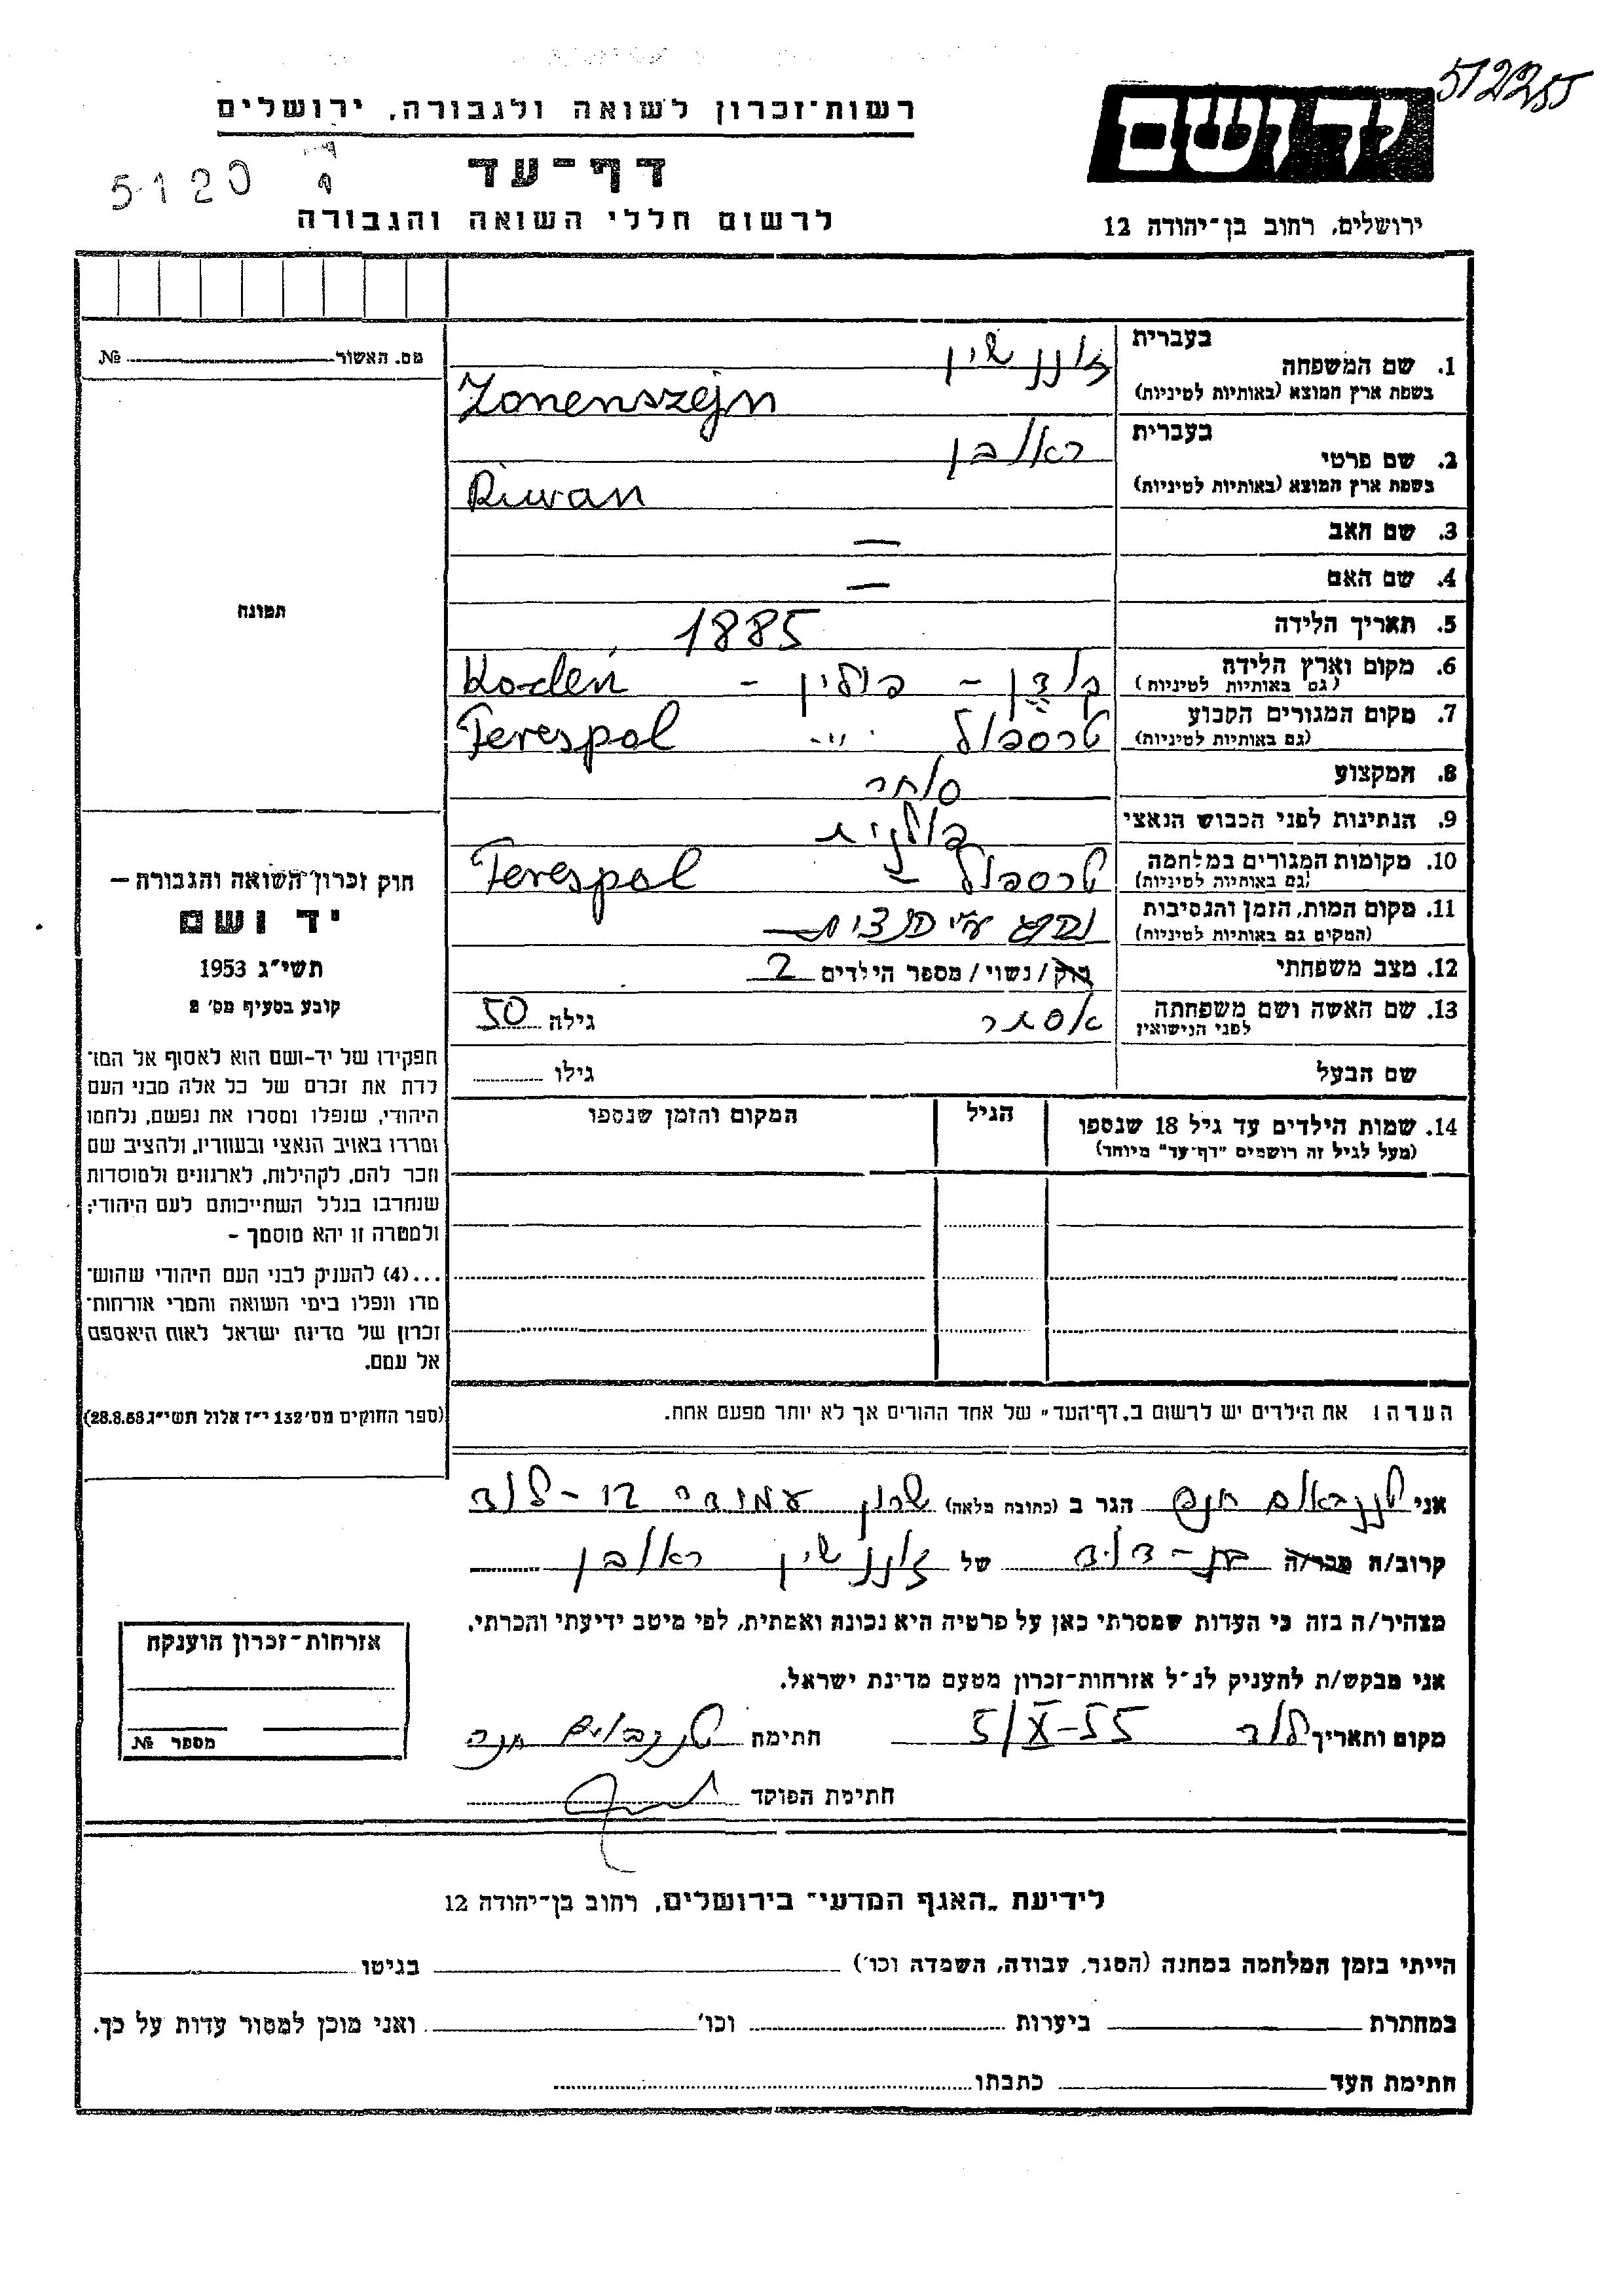 512255
רשות־זכרון לשואה ולגבורה, ירושלים
דף־עד
לרשום חללי השואה והגבורה
5120
יד ושם
ירושלים, רחוב בן־יהודה 12
מס. האשור № 
1. שם המשפחה
בעברית
זוננשיין
בשפת ארץ המוצא (באותיות לטיניות)
Zonenszejn
2. שם פרטי
בעברית
ראובן
בשפת ארץ המוצא (באותיות לטיניות)
Riwan
3. שם האב —
4. שם האם —
5. תאריך הלידה 1885
6. מקום וארץ הלידה
(גם באותיות לטיניות)
קודן - פולין - Kodeń
7. מקום המגורים הקבוע
(גם באותיות לטיניות)
טרספול Terespol
8. המקצוע סוחר
9. הנתינות לפני הכבוש הנאצי פולנית
10. מקומות המגורים במלחמה
(גם באותיות לטיניות)
טרספול Terespol
11. מקום המות, הזמן והנסיבות
(המקום גם באותיות לטיניות)
ע"י
12. מצב משפחתי רוק/נשוי/מספר הילדים 2
13. שם האשה ושם משפחתה
לפני הנישואין
אסתר גילה 50
שם הבעל גילו
14. שמות הילדים עד גיל 18 שנספו
(מעל לגיל זה רושמים "דף־עד" מיוחד)
הגיל
המקום והזמן שנספו
הערה! את הילדים יש לרשום ב"דף־העד" של אחד ההורים אך לא יותר מפעם אחת.
תמונה
חוק זכרון השואה והגבורה —
יד ושם
תשי"ג 1953
קובע בסעיף מס' 2
תפקידו של יד־ושם הוא לאסוף אל המו־
לדת את זכרם של כל אלה מבני העם
היהודי, שנפלו ומסרו את נפשם, נלחמו
ומרדו באויב הנאצי ובעוזריו, ולהציב שם
וזכר להם, לקהילות, לארגונים ולמוסדות
שנחרבו בגלל השתייכותם לעם היהודי;
ולמטרה זו יהא מוסמך -
...(4) להעניק לבני העם היהודי שהוש־
מדו ונפלו בימי השואה והמרי אזרחות־
זכרון של מדינת ישראל לאות היאספם
אל עמם.
(ספר החוקים מס' 132 י"ז אלול תשי"ג 28.8.53)
אני טננבאום חנה הגר ב (כתובת מלאה) שכון עמידר - לוד
קרוב/ה מכר/ה בת-דודה של זוננשיין ראובן
מצהיר/ה בזה כי העדות שמסרתי כאן על פרטיה היא נכונה ואמתית, לפי מיטב ידיעתי והכרתי.
אני מבקש/ת להעניק לנ"ל אזרחות־זכרון מטעם מדינת ישראל.
מקום ותאריך לוד 5/X-55 חתימה טננבאום חנה
חתימת הפוקד
אזרחות־זכרון הוענקה
מספר №
לידיעת "האגף המדעי" בירושלים, רחוב בן־יהודה 12
הייתי בזמן המלחמה במחנה (הסגר, עבודה, השמדה וכו') בגיטו
במחתרת ביערות וכו' ואני מוכן למסור עדות על כך.
חתימת העד כתבתו